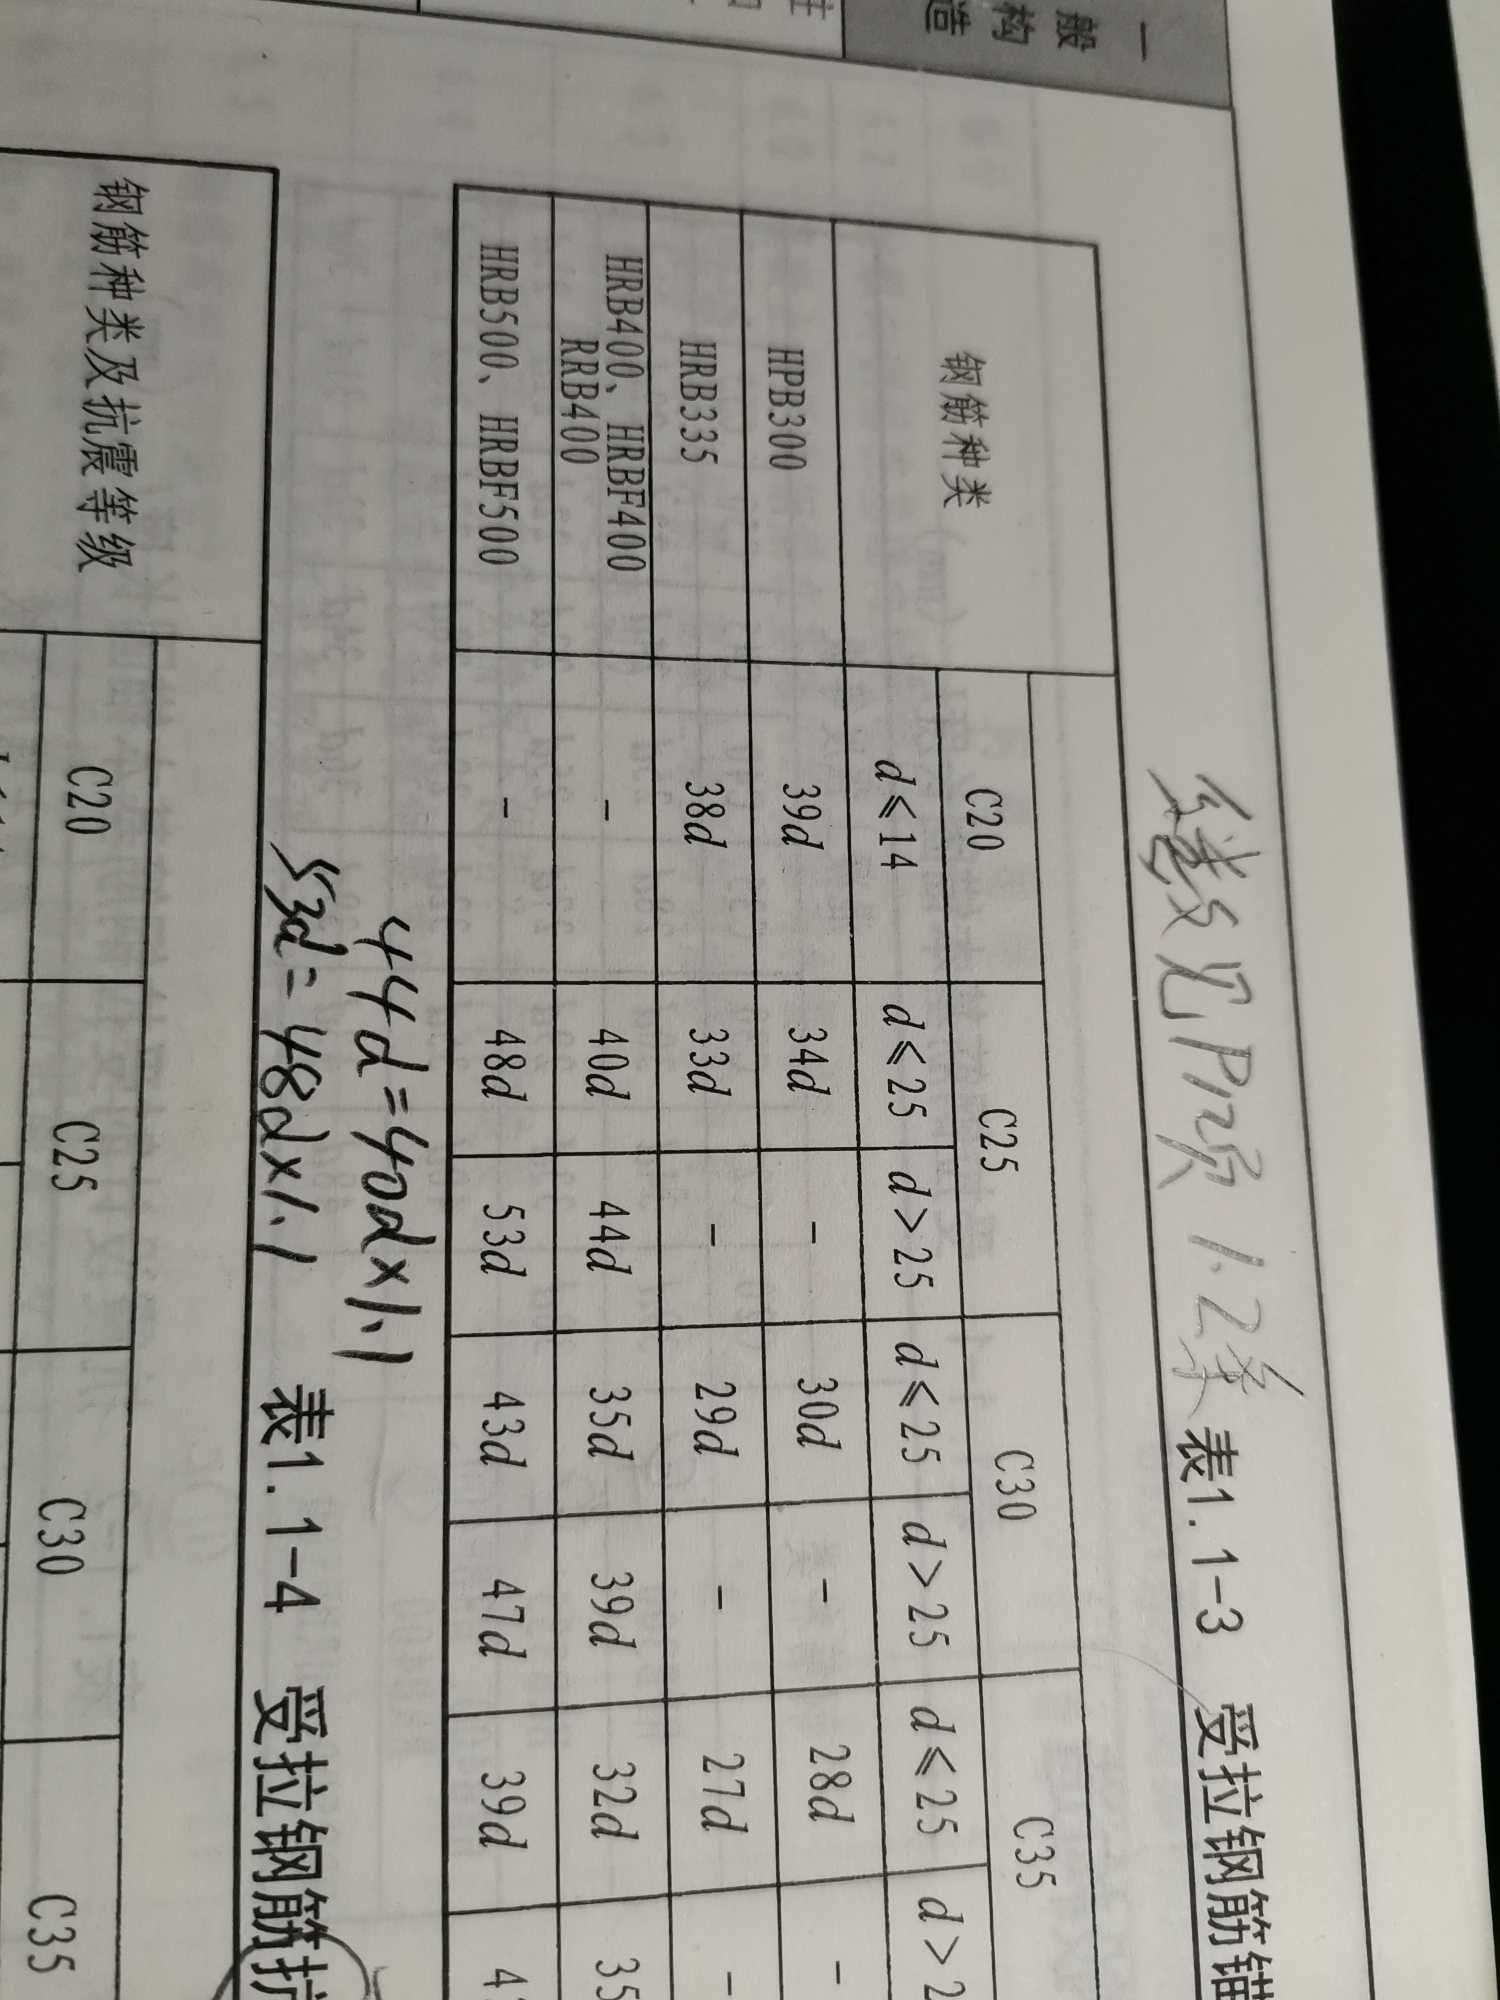 一般构造
见P12页 1.2条 表1.1-3 受拉钢筋锚
钢筋种类 C20 C25 C30 C35
d≤14 d≤25 d>25 d≤25 d>25 d≤25 d>2
HPB300 39d 34d - 30d - 28d -
HRB335 38d 33d - 29d - 27d -
HRB400、HRBF400
RRB400 - 40d 44d 35d 39d 32d 35
HRB500、HRBF500 - 48d 53d 43d 47d 39d 4
44d=40d×1.1
53d=48d×1.1 表1.1-4 受拉钢筋抗
钢筋种类及抗震等级 C20 C25 C30 C35